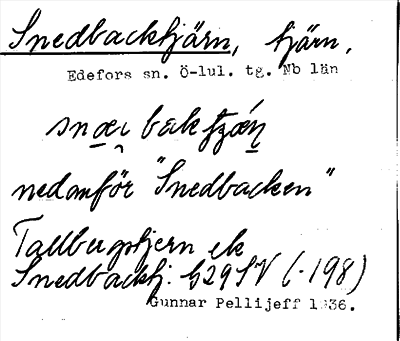 Snedbacktjärn, tjärn.
Edefors sn. Ö-lul. tg. Nb län
nedanför "Snedbacken"
Tallbergstjern ek
Snedbacktj. 629SV (.198)
Gunnar Pellijeff 1936.